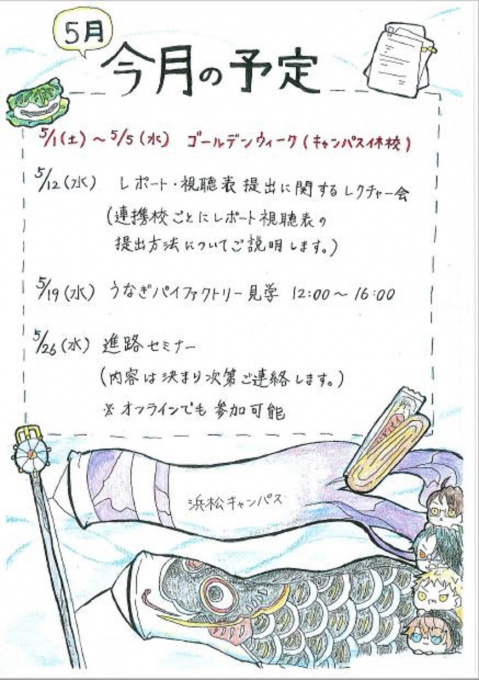 5月
今月の予定
5/1(土)～5/5(水) ゴールデンウィーク(キャンパス休校)
5/12(水) レポート・視聴表提出に関するレクチャー会
(連携校ごとにレポート視聴表の
提出方法についてご説明します。)
5/19(水) うなぎパイファクトリー見学 12:00～16:00
5/26(水) 進路セミナー
(内容は決まり次第ご連絡します。)
※オンラインでも参加可能
浜松キャンパス